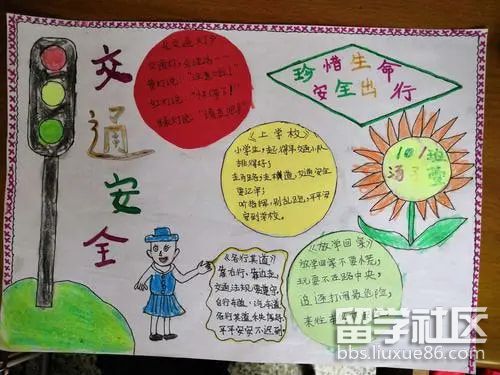 交通安全
《交通灯》
黄灯说：
红灯说：
绿灯说：
珍惜生命
安全出行
《上学校》
小学生，起得早，交通小队
排得好；
走马路，走横道，交通安全
要记牢；
听指挥，别乱跑，平平安
安到学校。
101班
《各行其道》
靠右行，靠边走，
交通法规要遵守，
自行车道，汽车道
各行其道
平平安安不迟到
《放学回家》
放学回家不要慌，
玩耍不在路中央，
追逐打闹最危险，
留学社区
bbs.liuxue86.com